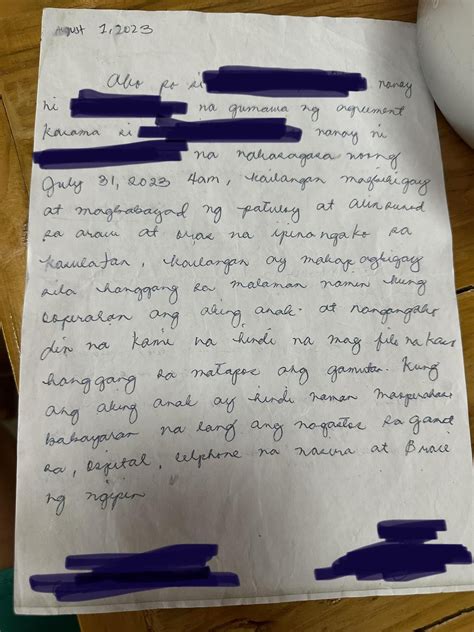 August 1, 2023
Ako po si nanay
ni na gumawa ng agreement
kasama si nanay ni
na nakasagasa noong
July 31, 2023 4am, kailangan magbibigay
at magbabayad ng patuloy at alinsunod
sa araw at oras na ipinangako sa
kasulatan, kailangan ay makapagbigay
sila hanggang sa malaman namin kung
ooperahan ang aking anak. at nangangako
din na kami na hindi na mag file na kaso
hanggang sa matapos ang gamutan. Kung
ang aking anak ay hindi naman maoperahan
babayaran na lang ang nagastos sa
sa, ospital, celphone na nasira at Brace
ng ngipin